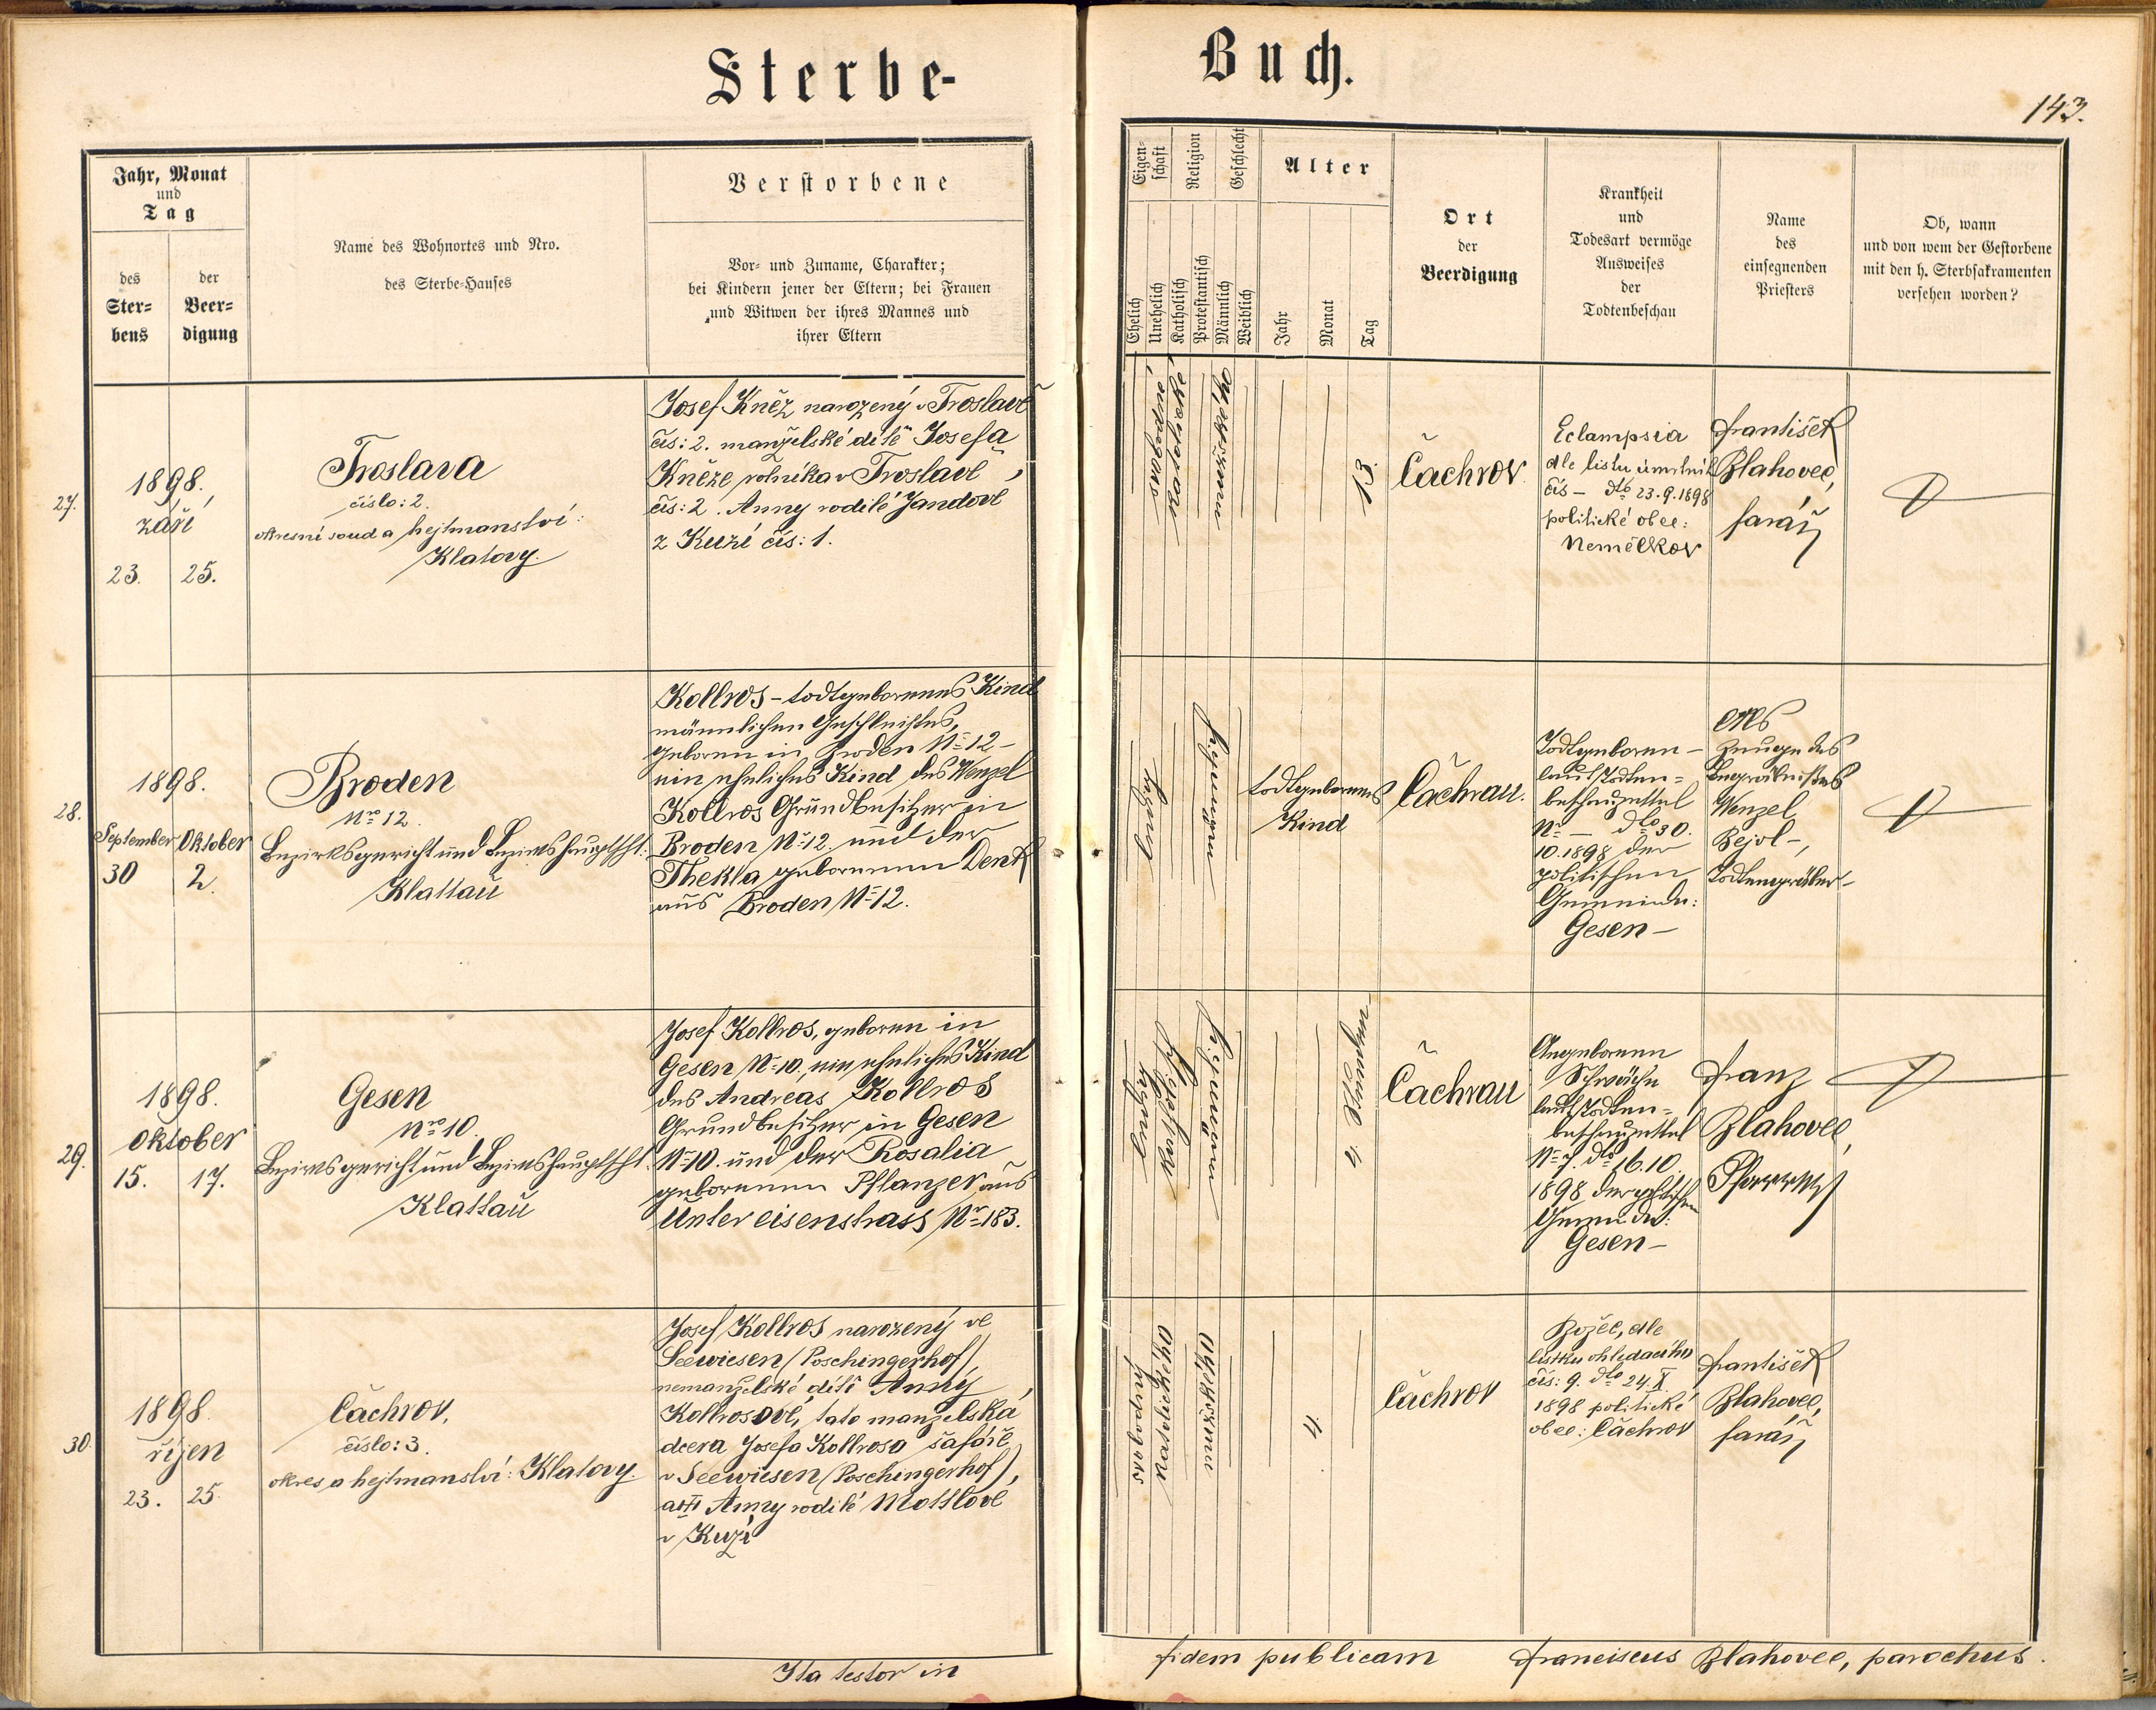 Sterbe-
Buch.
143.
Jahr, Monat
und
Tag
des
Ster-
bens
der
Beer-
digung
Name des Wohnortes und Nro.
des Sterbe-Hauses
Verstorbene
Vor- und Zuname, Charakter;
bei Kindern jener der Eltern; bei Frauen
und Witwen der ihres Mannes und
ihrer Eltern
Eigen-
schaft
Religion
Geschlecht
Ehelich
Unehelich
Katholisch
Protestantisch
Männlich
Weiblich
Alter
Jahr
Monat
Tag
Ort
der
Beerdigung
Krankheit
und
Todesart vermöge
Ausweises
der
Todtenbeschau
Name
des
einsegnenden
Priesters
Ob, wann
und von wem der Gestorbene
mit den h. Sterbsakramenten
versehen worden?
27.
1898,
září
23. 25.
Froslava
číslo: 2.
okresní soud a hejtmanství:
Klatovy.
Josef Kněz narozený v Froslavě
čís: 2. manželské dítě Josefa
Kněze, rolníka v Froslavě
čís: 2. Anny rodilé Jandové
z Kuží čís: 1.
13.
Čachrov.
Eclampsia
dle listu úmrtních
čís – dto 23.9.1898
politické obec:
Nemělkov
František
Blahovec,
farář
28.
1898.
September Oktober
30 2.
Broden
Nro 12.
Bezirksgericht und Bezirkshauptscht:
Klattau
Kollros - todtgeborenes Kind
männlichen Geschlechtes,
geboren in Broden No 12 –
ein eheliches Kind des Wenzel
Kollros Grundbesitzer in
Broden No 12. und der
Thekla geborenen Denk
aus Broden No 12.
ehelig
männliche
todtgeborenes
Kind
Čachrau.
Todtgeboren –
laut Todten-
beschauzettel
No – dto 30.
10.1898 der
politischen
Gemeinde:
Gesen –
Als
Zeuge des
Begräbnisses
Wenzel
Bejvl –,
Todtengräber –
29.
1898.
Oktober
15. 17.
Gesen
Nro 10.
Bezirksgericht und Bezirkshauptscht.
Klattau
Josef Kollros, geboren in
Gesen No 10., ein eheliches Kind
des Andreas Kollros
Grundbesitzer in Gesen
No 10. und der Rosalia
geborenen Pflanzer aus
Untereisenstrass No 183.
Čachrau
Angeborene
Schwäche
laut Todten-
beschauzettel
No 7. dto 16.10.
1898 der politischen
Gemeinde:
Gesen –
Franz
Blahovec,
Pfarrer
30.
1898
říjen
23. 25.
Čachrov,
číslo: 3.
okres a hejtmanství: Klatovy.
Josef Kollros narozený ve
Seewiesen (Poschingerhof),
nemanželské dítě Anny
Kollrosové, tato manželská
dcera Josefa Kollrosa šafáře
v Seewiesen (Poschingerhof),
a Anny rodilé Mottlové
v Kuží
svobodný
katolického
mužského
4.
Čachrov
Božec, dle
lístku ohledacího
čís: 9. dto 24.X
1898 politické
obec: Čachrov
František
Blahovec,
farář
Ita testor in
fidem publicam Franciscus Blahovec, parochus.